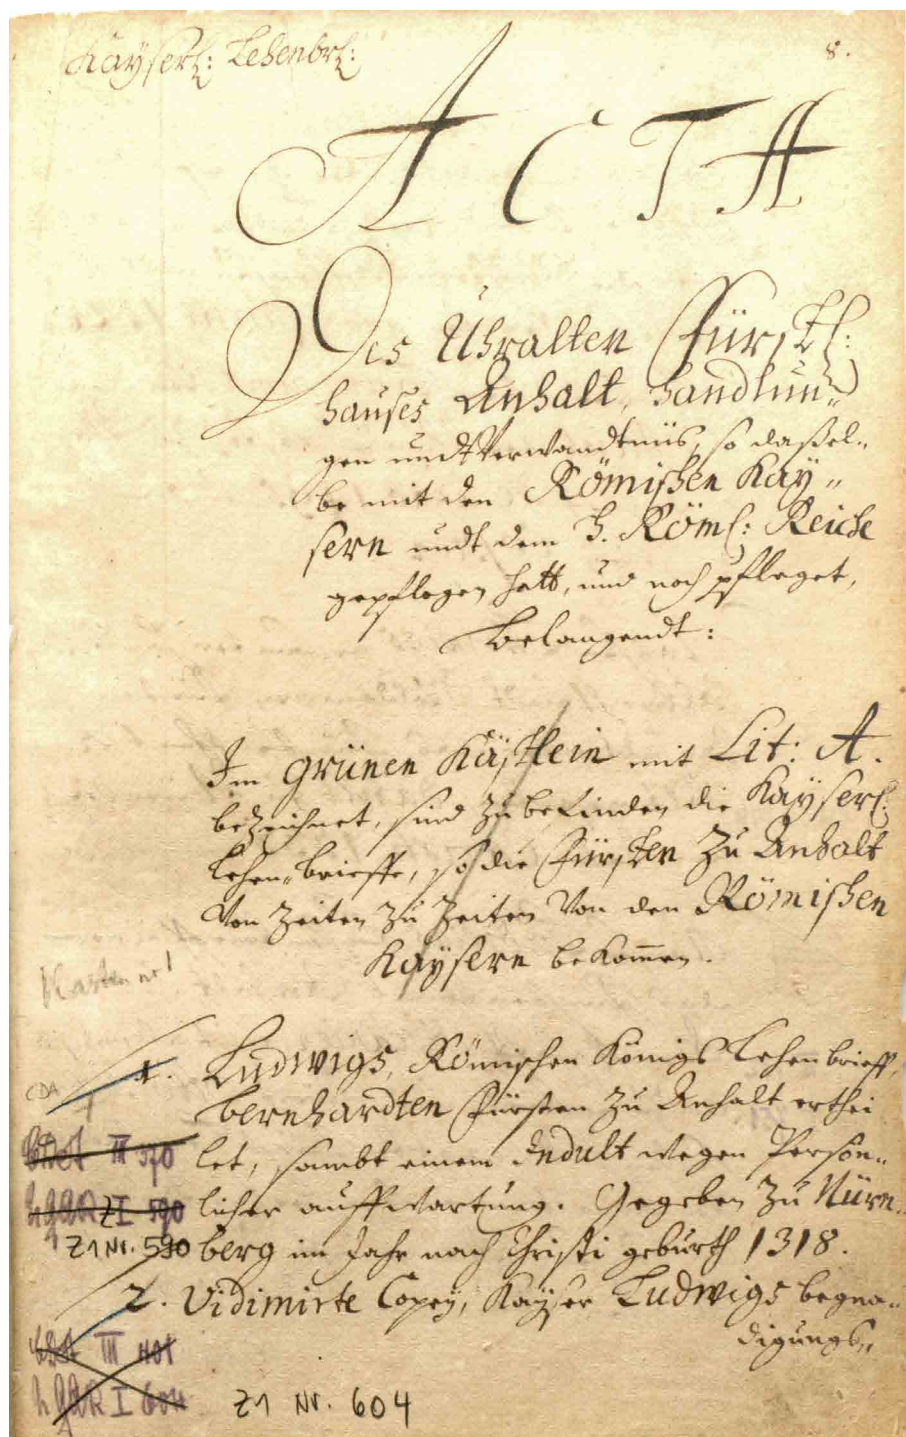 Kaÿserl: Lehenbrl:
8.
ACTA
Des Uhralten Fürstl:
hauses Anhalt, handlun„
gen undt Verwandtnüs, so daßel„
be mit den Römischen Kaÿ„
sern undt dem H. Röml: Reiche
gepflogen hatt, und noch pfleget,
belangendt:
Im grünen Kästlein mit Lit: A.
bezeichnet, sind zu befinden die Kaÿserl:
Lehen„brieffe, so die Fürsten zu Anhalt
von Zeiten zu Zeiten von den Römischen
Kaÿsern bekom̄en.
Kasten nr 1
1. Ludwigs, Römischen Königs Lehenbrieff,
CDA
bernhardten Fürsten zu Anhalt erthei
III 370
let, sambt einem Indult wegen Person„
I 590
licher auffwartung. Gegeben zu Nürn„
Z1 Nr. 590
berg im Jahr nach Christi geburth 1318.
2. Vidimirte Copeÿ, Kaÿser Ludwigs begna„
digungs„
III 401
I 604
Z1 Nr. 604